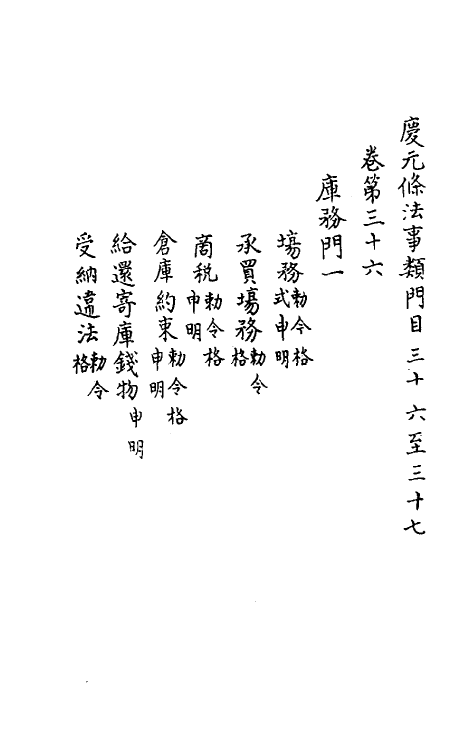 慶元條法事類門目 三十六至三十七
卷第三十六
庫務門一
塲務勅令格式申明
承買塲務勅令格
商税勅令格申明
倉庫約束勅令格申明
給還寄庫錢物申明
受納違法勅令格